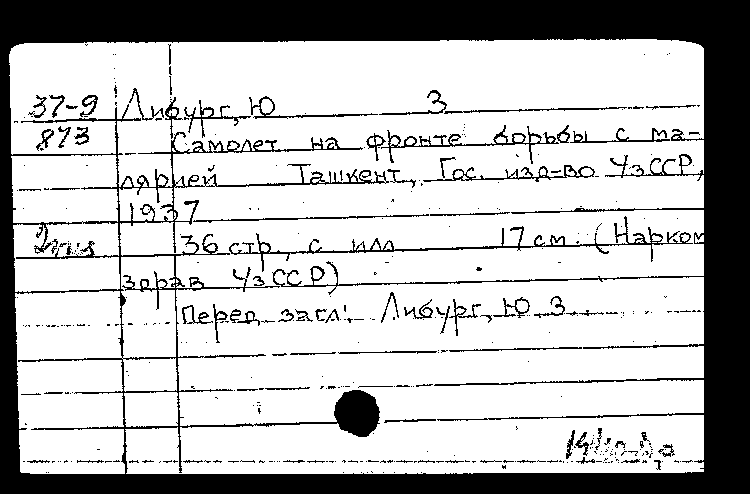 37-9 Либург, Ю З
873 Самолет на фронте борьбы с ма-
лярией Ташкент, Гос. изд-во УзССР,
1937
36 стр., с илл 17 см. (Нарком
здрав УзССР)
Перед загл: Либург, Ю. З.